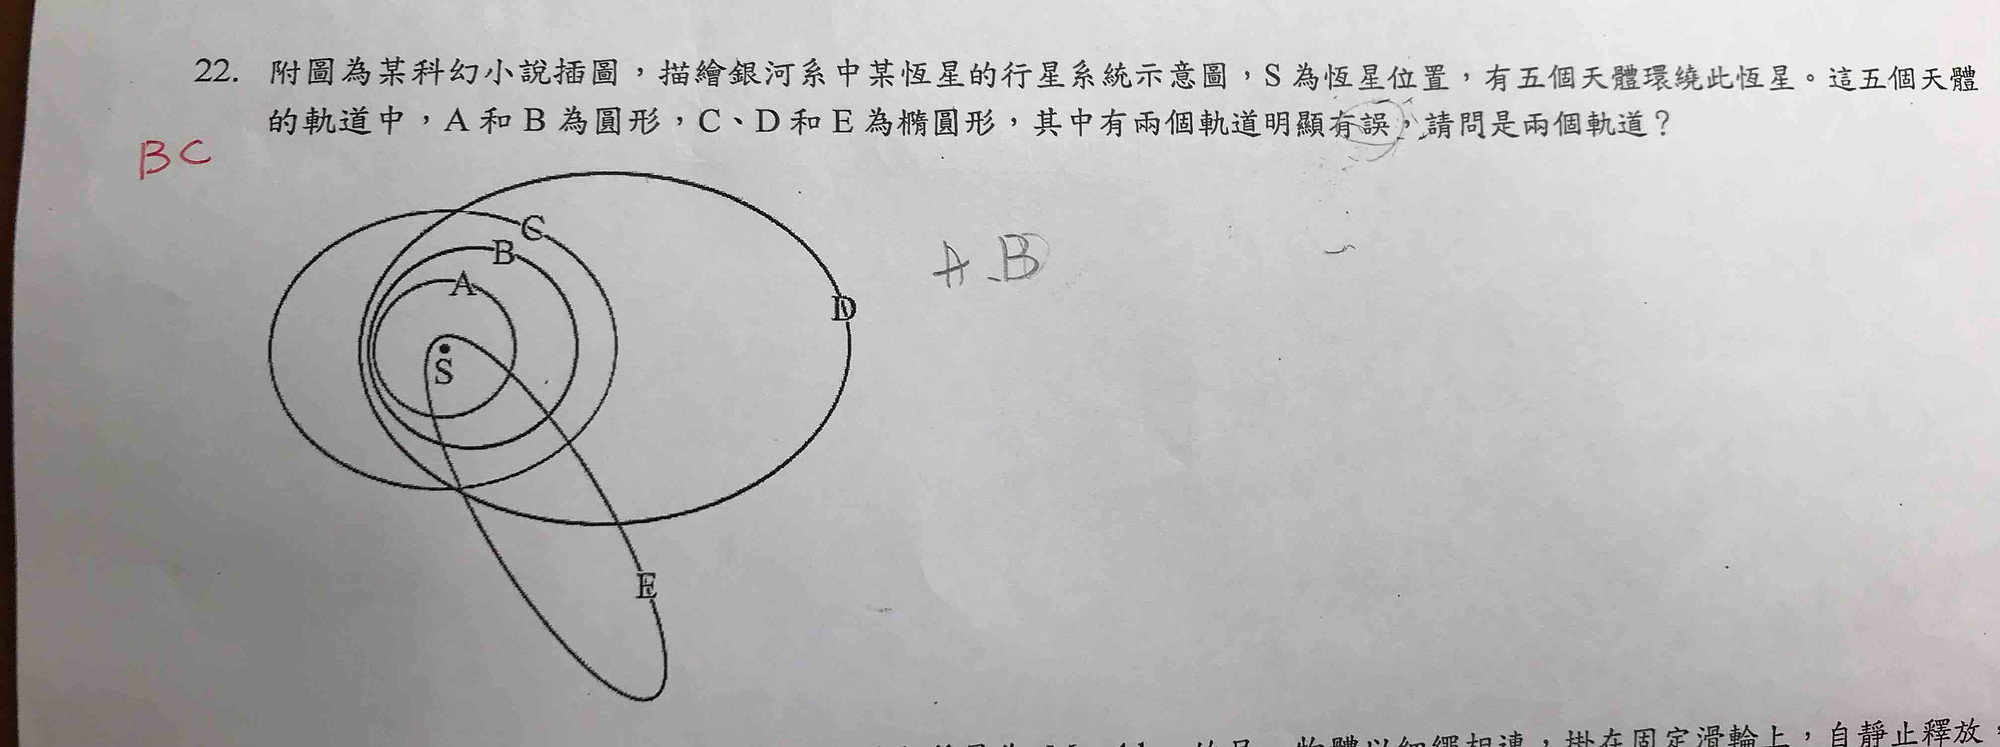 22. 附圖為某科幻小說插圖，描繪銀河系中某恆星的行星系統示意圖，S 為恆星位置，有五個天體環繞此恆星。這五個天體
的軌道中，A 和 B 為圓形，C、D 和 E 為橢圓形，其中有兩個軌道明顯有誤，請問是兩個軌道？
BC
C
B
A
A B
D
S
E
物體以細繩相連，掛在固定滑輪上，自靜止釋放，